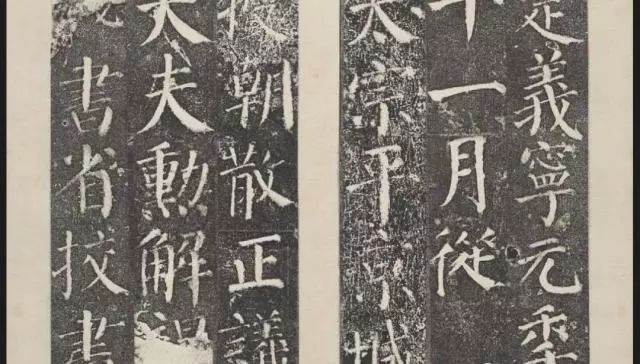 義寧元秊
十一月從
太宗平京城
朝散正議
大夫勳解褐
書省挍書